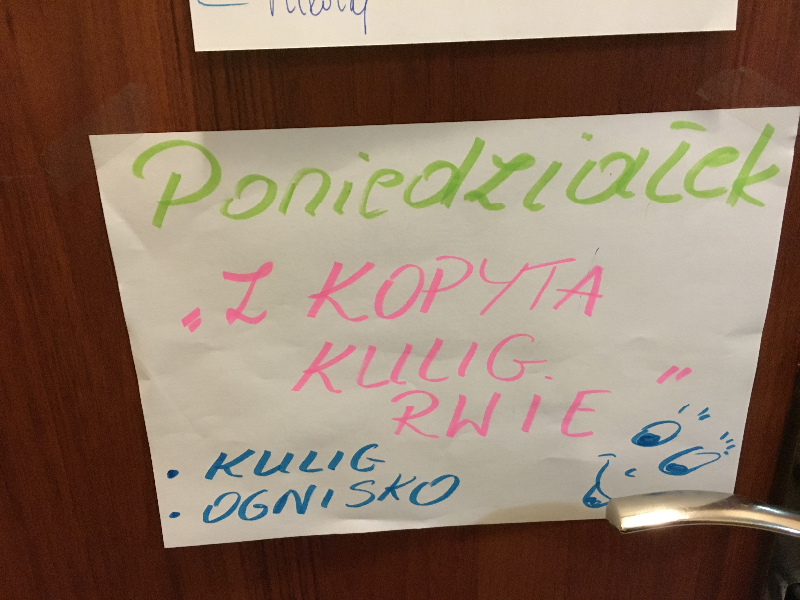 Poniedziałek
„Z KOPYTA
KULIG
RWIE"
• KULIG
• OGNISKO